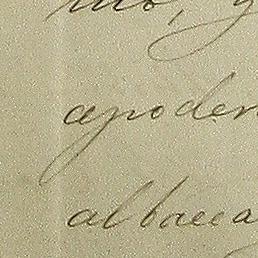 mo, y
apoder
albacea